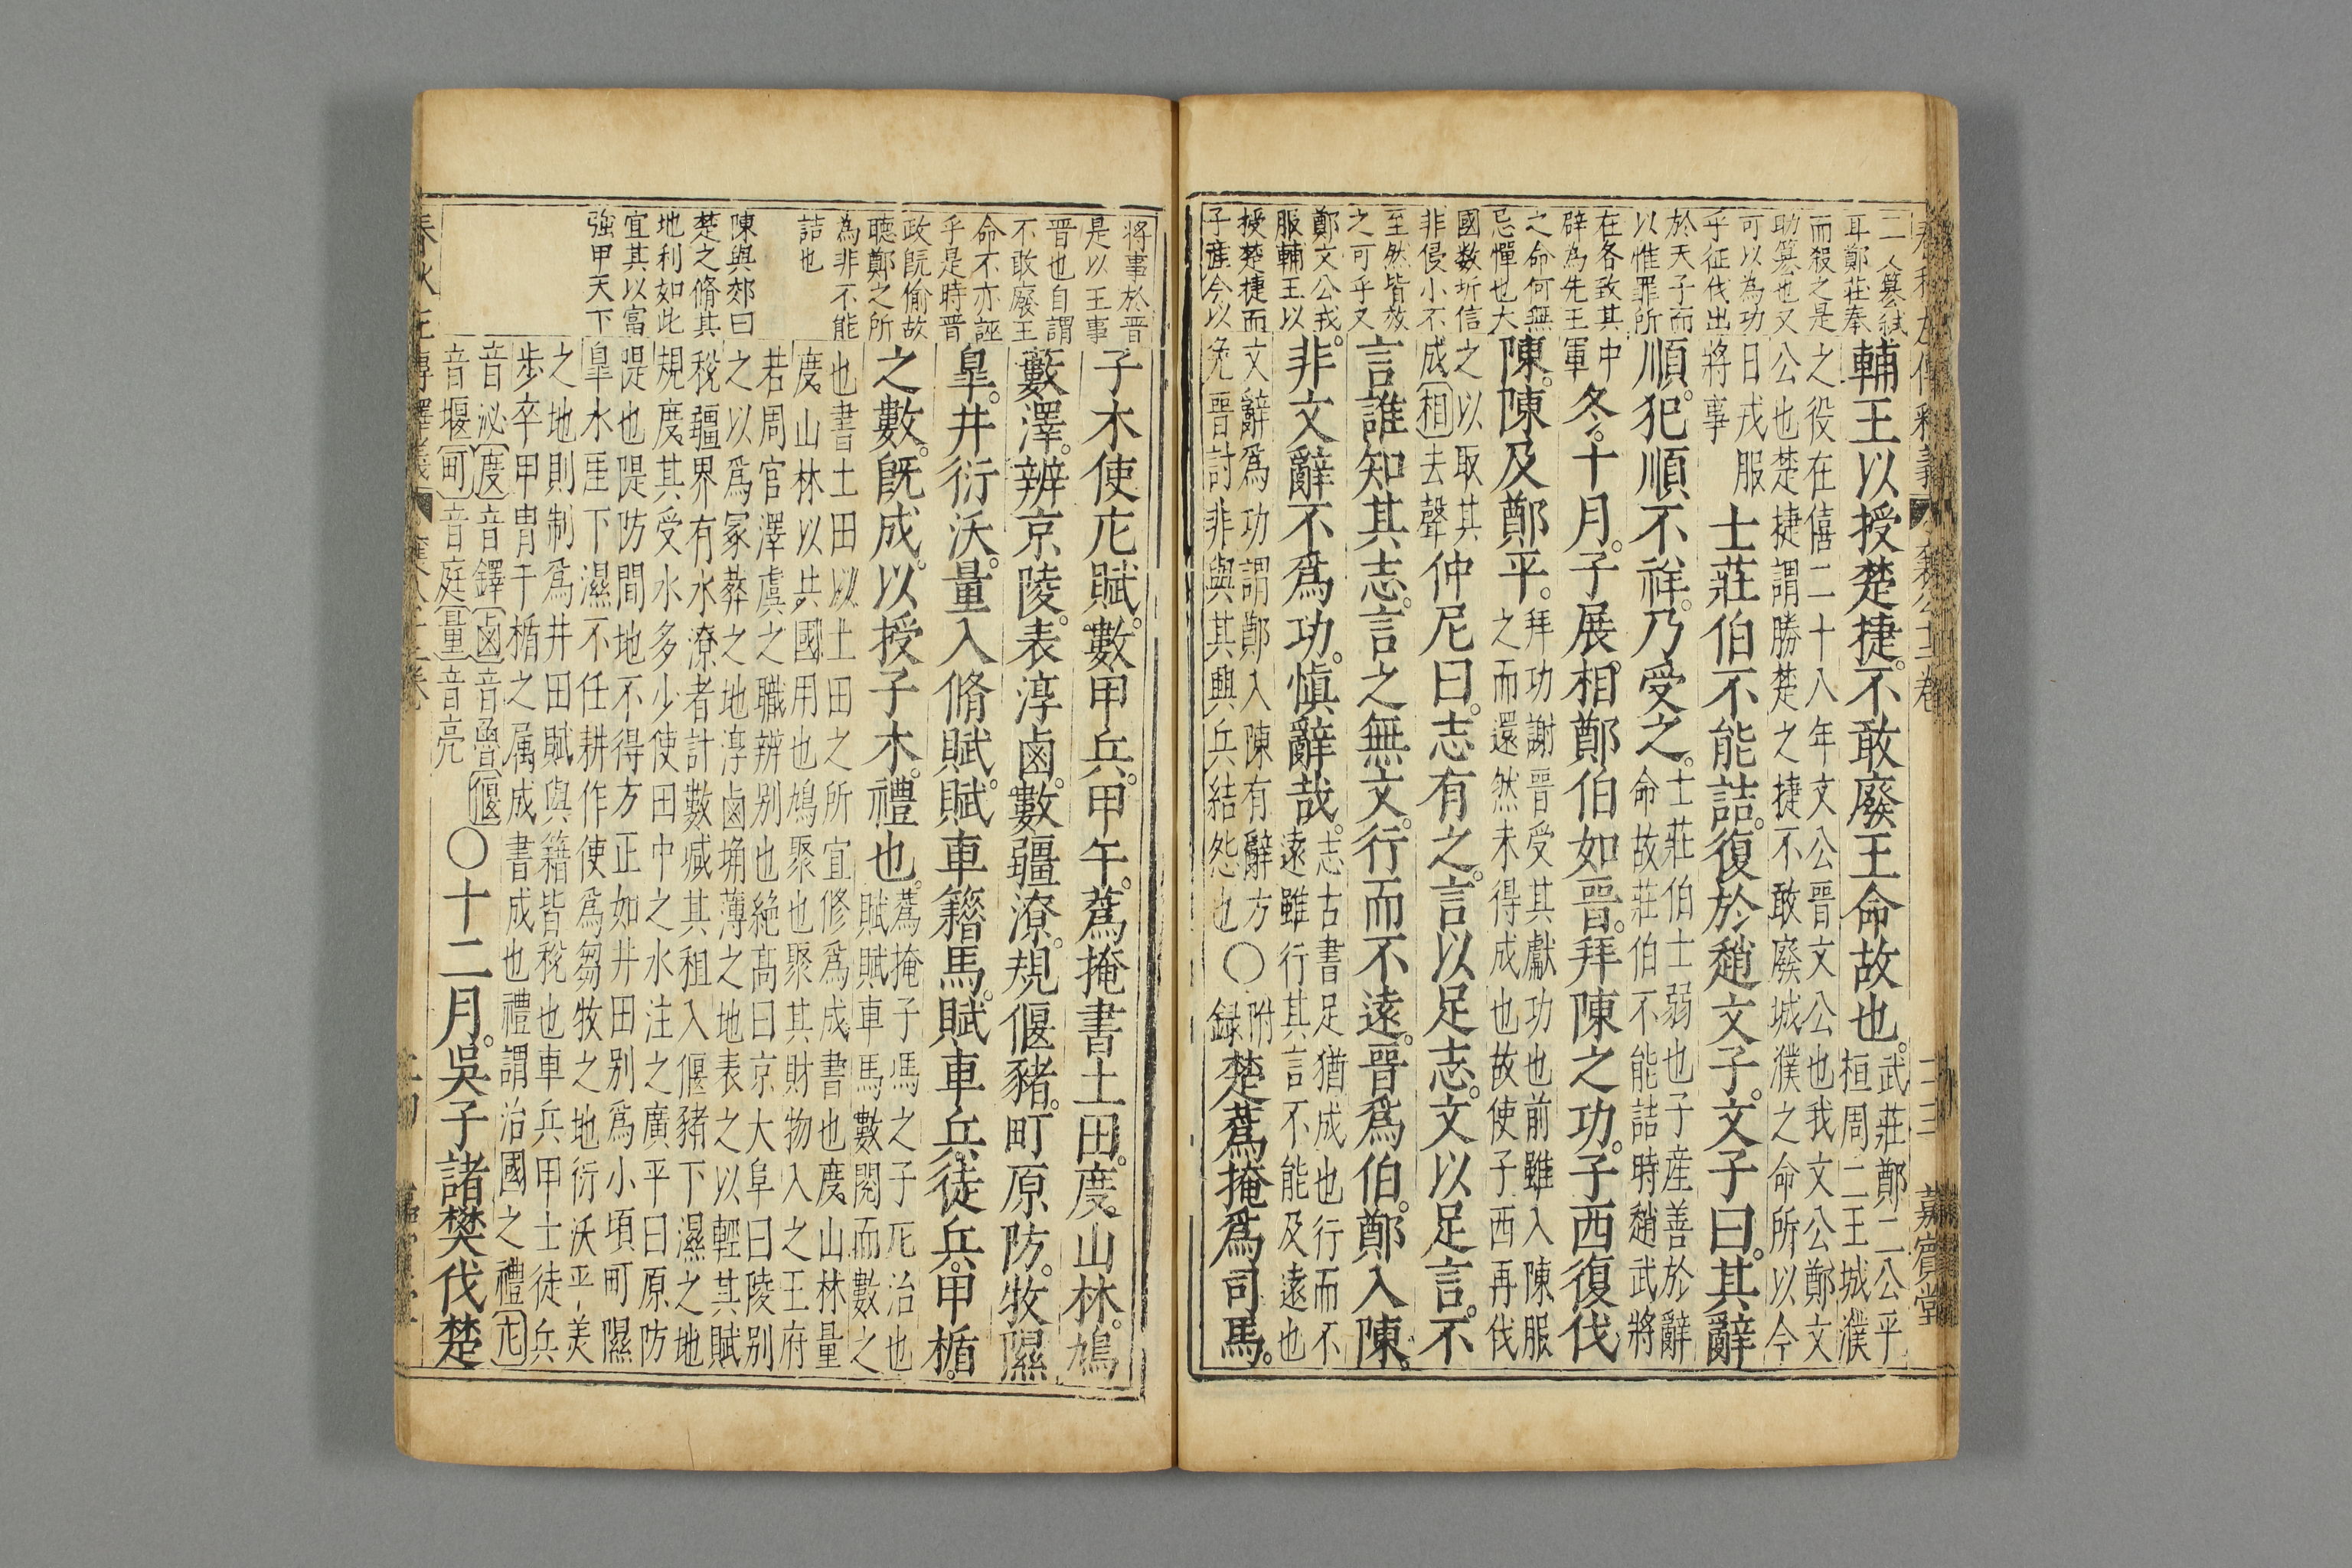 春秋左傳釋義 襄公十二卷 二十三 嘉賓堂
二人篡弒
耳鄭莊奉
而殺之是
助篡也又
可以為功
乎征伐出
於天子而
以惟罪所
在各致其
辟為先王
之命何無
忌憚也大
國数圻信
非侵小不
至然皆放
之可乎又
鄭文公戎
服輔王以
授楚捷而
子產今以
輔王以授楚捷。不敢廢王命故也。武莊鄭二公乎
桓周二王城濮
之役在僖二十八年文公晉文公也我文公鄭文
公也楚捷謂勝楚之捷不敢廢城濮之命所以今
日戎服
將事 士莊伯不能詰。復於趙文子。文子曰。其辭
順。犯順不祥。乃受之。士莊伯士弱也子產善於辭
命故莊伯不能詰時趙武將
中
軍 冬。十月。子展。相鄭伯如晉。拜陳之功。子西復伐
陳。陳及鄭平。拜功謝晉受其獻功也前雖入陳服
之而還然未得成也故使子西再伐
之以取其
成相去聲 仲尼曰。志有之。言以足志。文以足言。不
言誰知其志。言之無文。行而不遠。晉爲伯。鄭入陳。
非文辭不爲功。慎辭哉。志古書足猶成也行而不
遠雖行其言不能及遠也
文辭爲功謂鄭入陳有辭方
免晉討非與其興兵結怨也 ○附録 楚蒍掩爲司馬。
將事於晉
是以王事
晉也自謂
不敢廢王
命不亦誣
乎是時晉
政既偷故
聽鄭之所
為非不能
詰也
陳與郊曰
楚之脩其
地利如此
宜其以富
強甲天下
子木使庀賦。數甲兵。甲午。蒍掩書土田。度山林。鳩
藪澤。辨京陵。表淳鹵。數疆潦。規偃豬。町原防。牧隰
皐。井衍沃。量入脩賦。賦車籍馬。賦車兵。徒兵。甲楯。
之數。既成。以授子木。禮也。蒍掩子馮之子庀治也
賦賦車馬數閱而數之
也書土田以土田之所宜修爲成書也度山林量
度山林以共國用也鳩聚也聚其財物入之王府
若周官澤虞之職辨别也絶高曰京大阜曰陵别
之以爲冢葬之地淳鹵埆薄之地表之以輕其賦
稅疆界有水潦者計數減其租入偃豬下濕之地
規度其受水多少使田中之水注之廣平曰原防
隄也隄防間地不得方正如井田别爲小頃町隰
皐水厓下濕不任耕作使爲芻牧之地衍沃平美
之地則制爲井田賦與籍皆稅也車兵甲士徒兵
步卒甲冑干楯之属成書成也禮謂治國之禮庀
音泌度音鐸鹵音魯偃
音堰町音庭量音亮 ○十二月。吳子諸樊伐楚
春秋左傳釋義